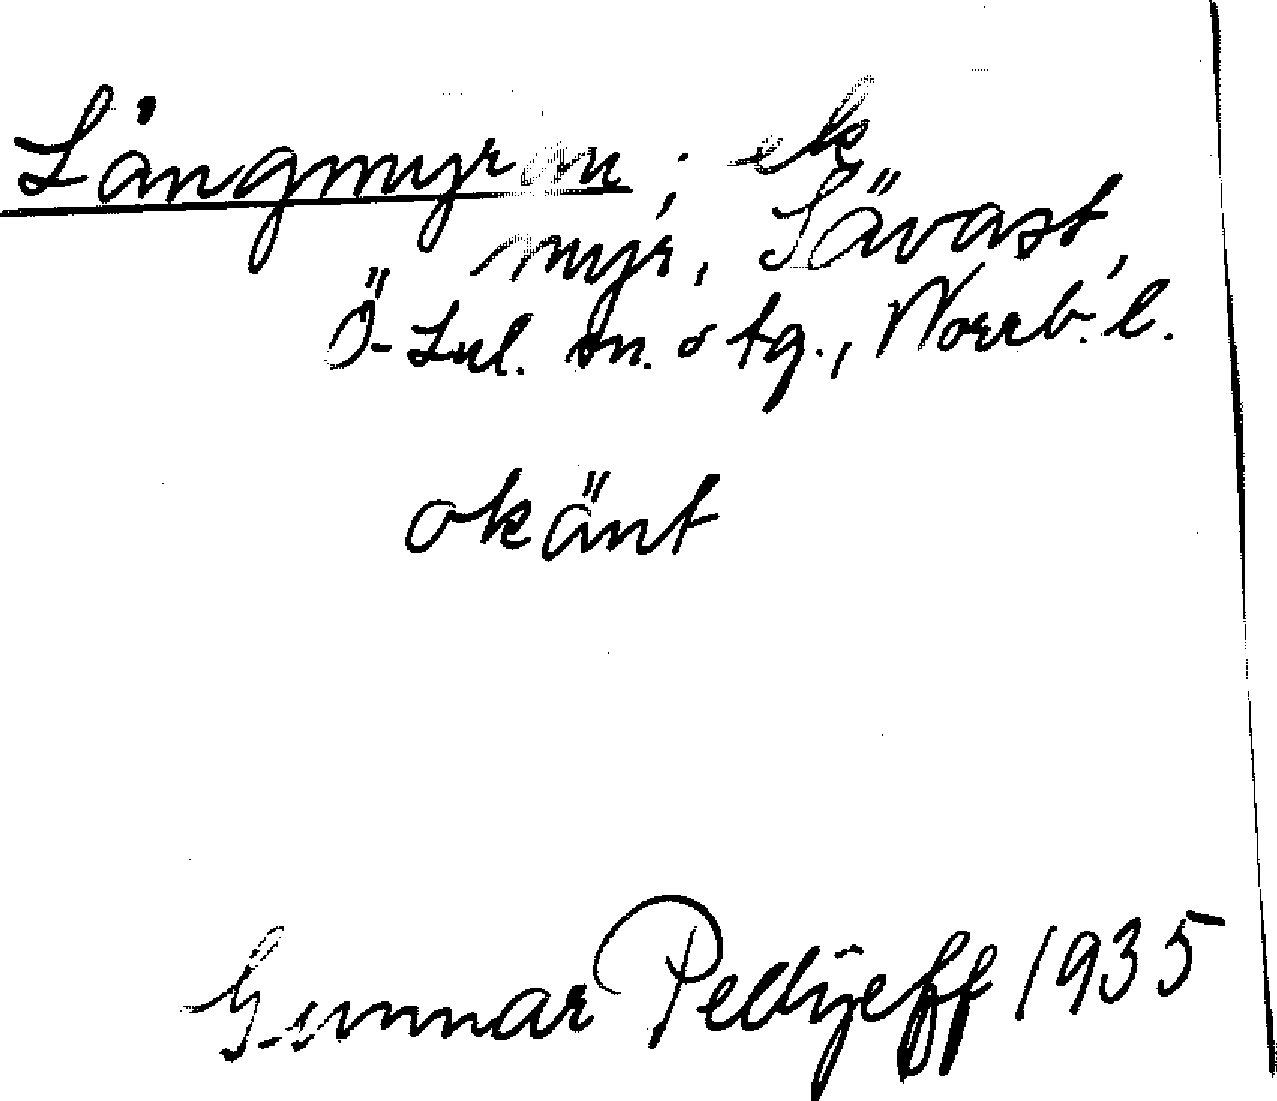 Långmyran, ek
myr, Sävast,
Ö-Lul. sn. o tg., Norrb. l.
okänt
Gunnar Pellijeff 1935